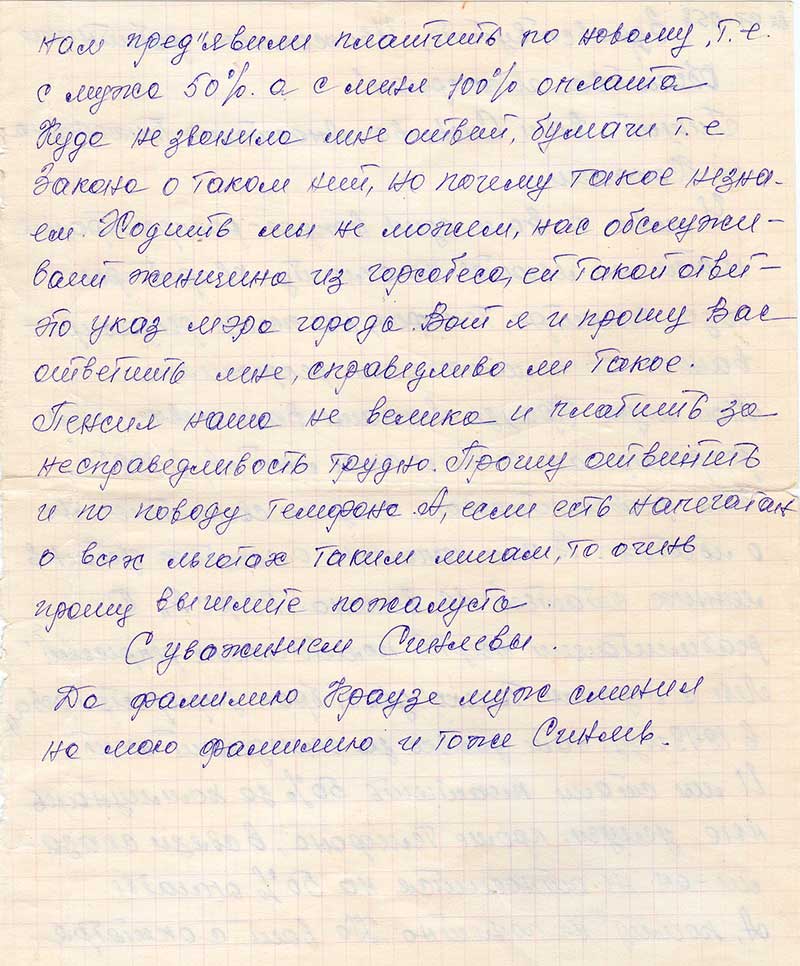 нам пред'явили платить по новому, т.е.
с мужа 50%. а с меня 100% оплата
Куда не звонила мне ответ, бумаги т.е
Закона о таком нет, но почему такое незна-
ем. Ходить мы не можем, нас обслужи-
вает женщина из горсобеса, ей такой ответ-
это указ мэра города. Вот я и прошу Вас
ответить мне, справедливо ли такое.
Пенсия наша не велика и платить за
несправедливость трудно. Прошу ответить
и по поводу телефона. А, если есть напечатан
о всех льготах таким лицам, то очень
прошу вышлите пожалуста
С уважением Синяевы.
Да фамилию Краузе муж сменил
на мою фамилию и тоже Синяев.